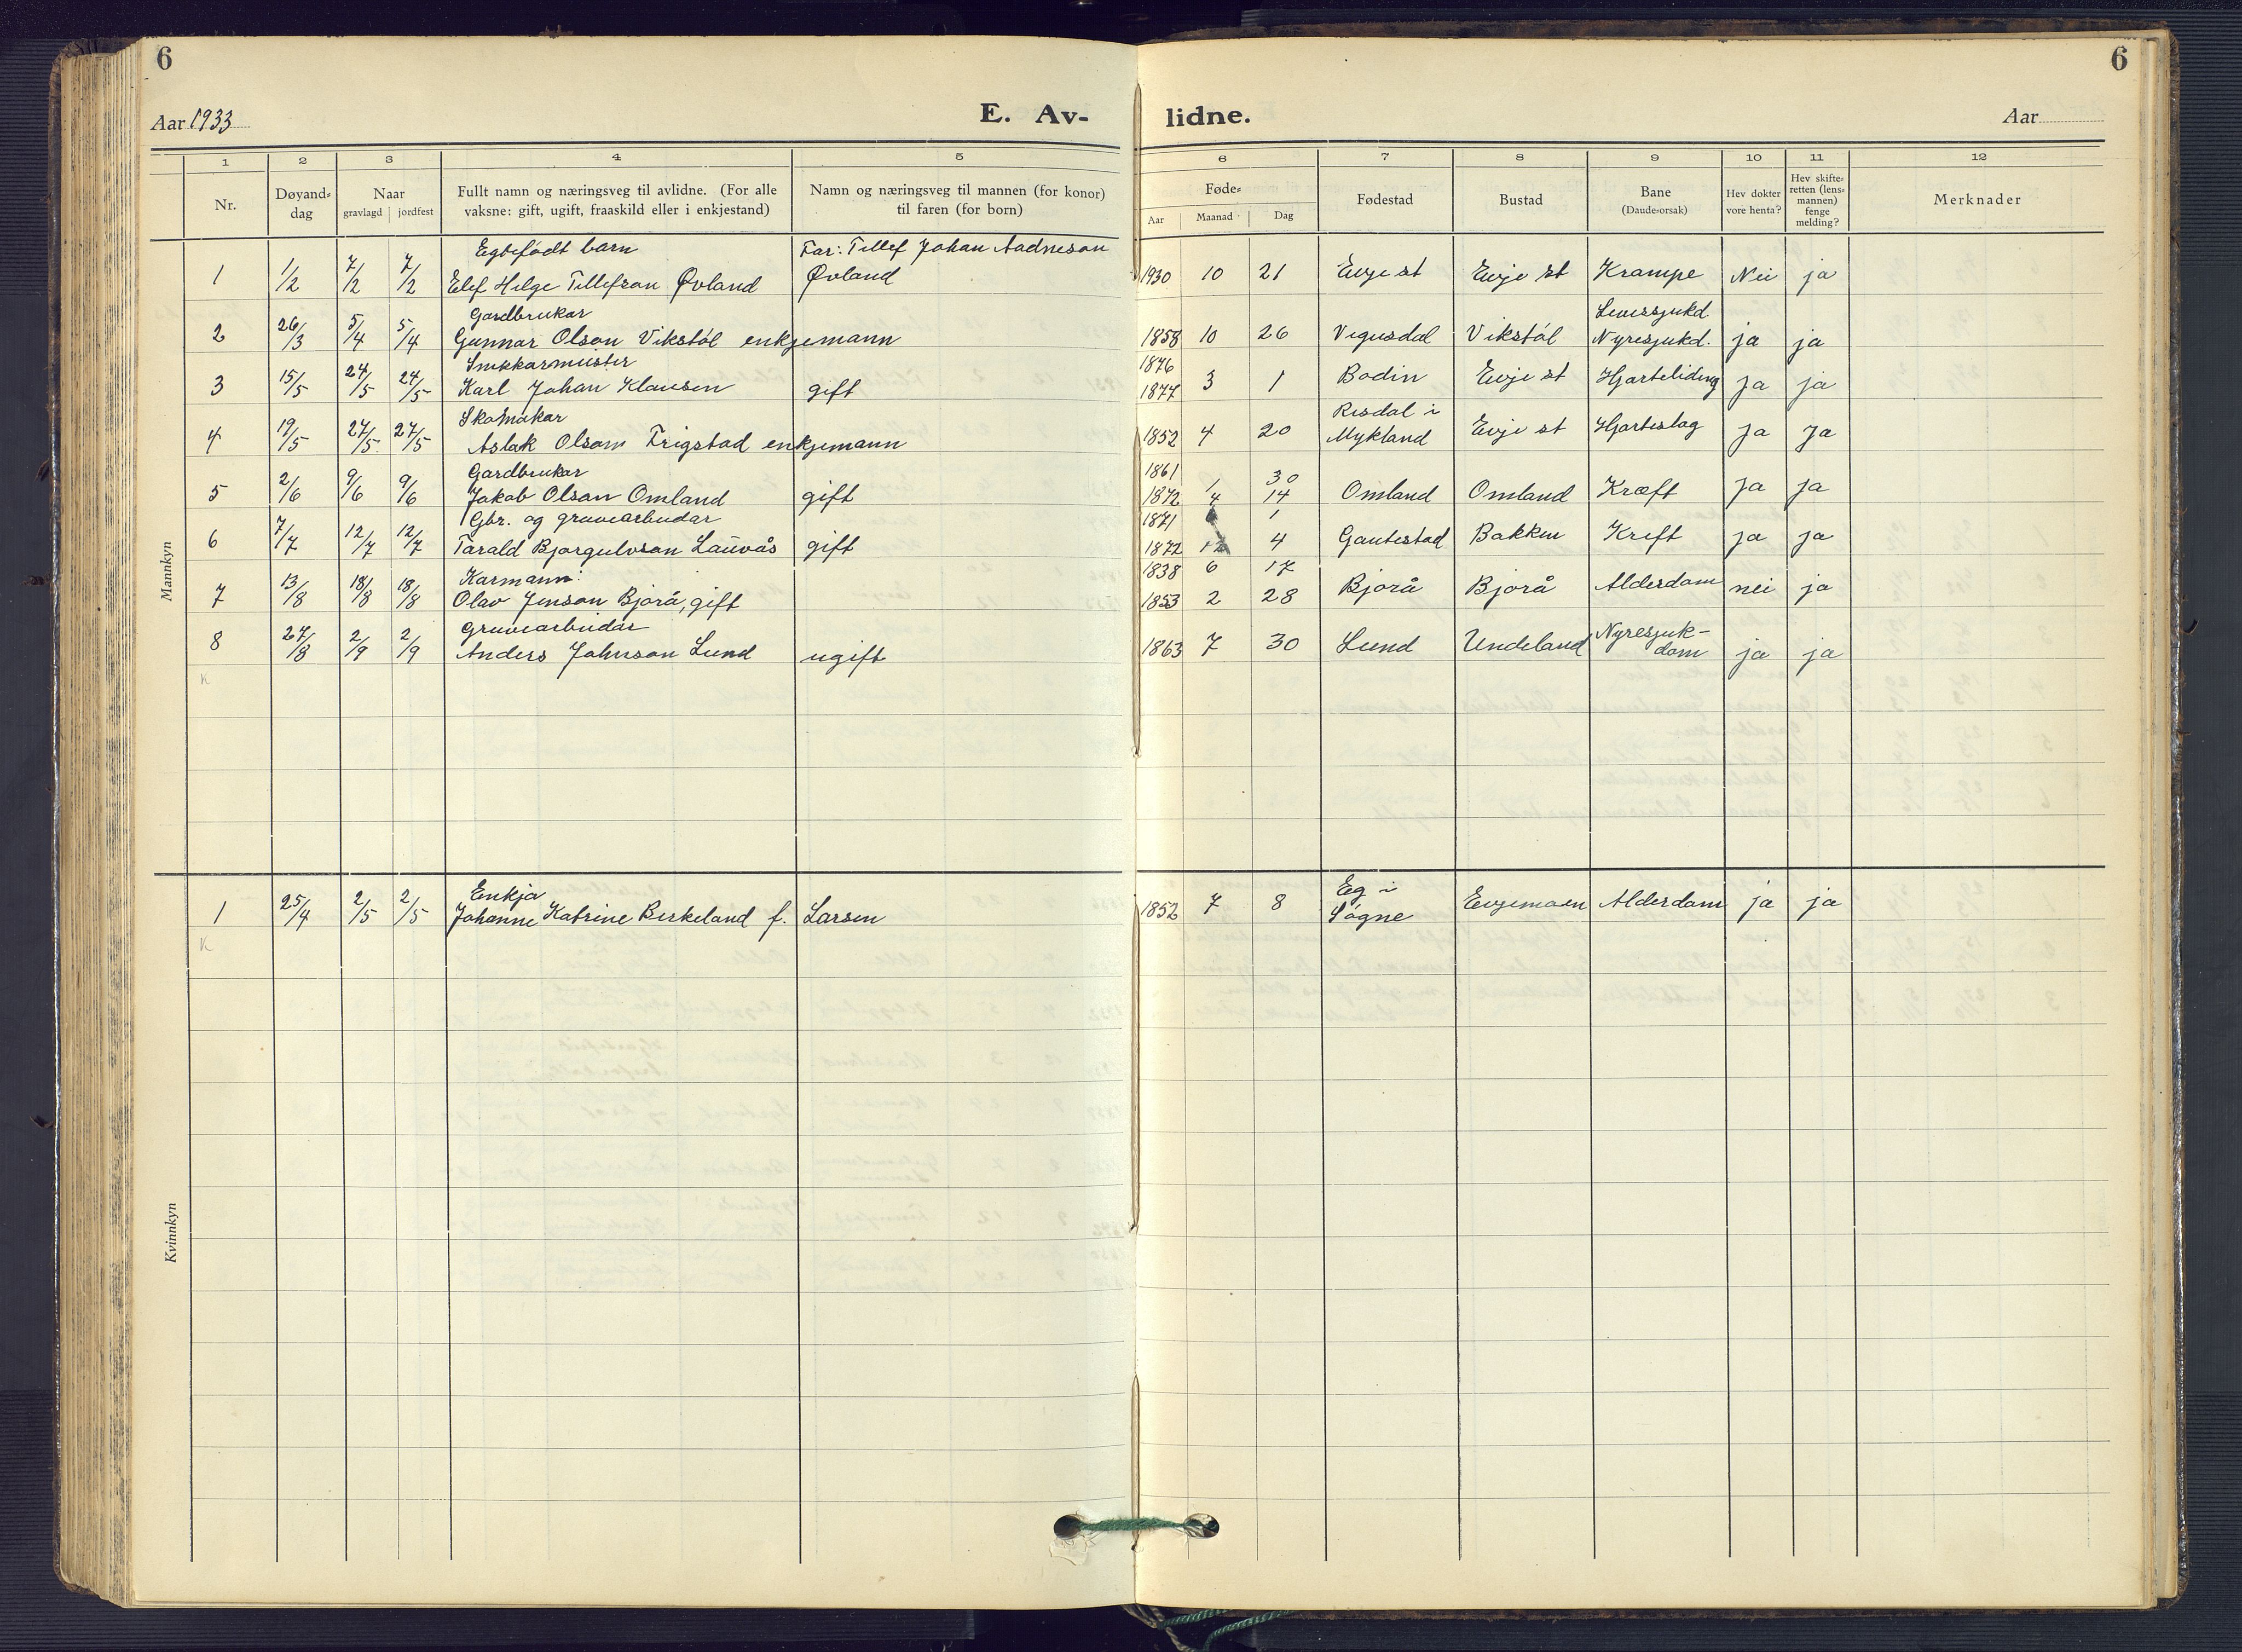 6
6
Aar 1933
E. Av-
lidne.
Aar
1 2 3 4 5 6 7 8 9 10 11 12
Nr.
Døyand-dag
Naar
gravlagd jordfest
Fullt namn og næringsveg til avlidne. (For alle
vaksne: gift, ugift, fraaskild eller i enkjestand)
Namn og næringsveg til mannen (for konor)
til faren (for born)
Føde-
Aar Maanad Dag
Fødestad
Bustad
Bane
(Daude-orsak)
Hev dokter
vore henta?
Hev skifte-
retten (lens-
mannen)
fenge
melding?
Merknader
Mannkyn
Egtefødt barn Far: Tellef Johan Aadneson
1 1/2 7/2 7/2 Elef Helge Tellefson Øvland Øvland 1930 10 21 Evje st Evje st Krampe Nei ja
Gardbrukar Leversjukd
2 26/3 5/4 5/4 Gunnar Olson Vikstøl enkjemann 1858 10 26 Vegusdal Vikstøl Nyresjukd. ja ja
Snikkarmeister 1876
3 15/5 24/5 24/5 Karl Johan Klausen gift 1877 3 1 Bodin Evje st Hjarteliding ja ja
Skomakar Risdal i
4 19/5 27/5 27/5 Aslak Olson Frigstad enkjemann 1852 4 20 Mykland Evje st Hjarteslag ja ja
Gardbrukar 1861 1 30
5 2/6 9/6 9/6 Jakob Olson Omland gift 1872 4 14 Omland Omland Kræft ja ja
Gbr. og gruvearbeidar 1871 1
6 7/7 12/7 12/7 Tarald Bjorgulvson Lauvås gift 1872 12 4 Gautestad Bakken Kreft ja ja
Karmann: 1838 6 17
7 13/8 18/8 18/8 Olav Jenson Bjorå, gift 1853 2 28 Bjorå Bjorå Alderdom nei ja
Gruvearbeidar Nyresjuk-
8 27/8 2/9 2/9 Anders Johnson Lund ugift 1863 7 30 Lund Undeland dom ja ja
K
Kvinnkyn
Enkja Eg i
1 25/4 2/5 2/5 Johanne Katrine Berkeland f. Larsen 1852 7 8 Søgne Evjemoen Alderdom ja ja
K